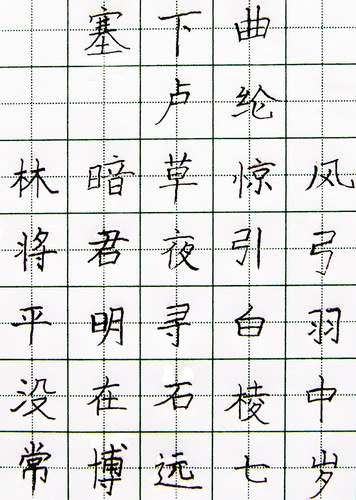 塞下曲
卢纶
林暗草惊风
将君夜引弓
平明寻白羽
没在石棱中
常博远七岁